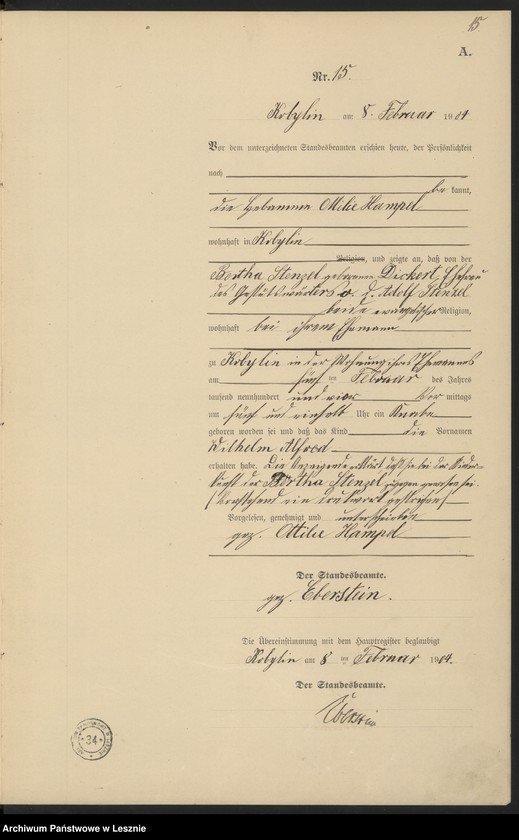 15.
A.
Nr. 15.
Kobylin am 8. Februar 1904.
Vor dem unterzeichneten Standesbeamten erschien heute, der Persönlichkeit
nach
be kannt,
die Hebamme Ottilie Hampel
wohnhaft in Kobylin
Religion, und zeigte an, daß von der
Bertha Stenzel geborenen Dickert, Ehefrau
des Gestütswärters a. D. Adolf Stenzel
beide evangelischer Religion,
wohnhaft bei ihrem Ehemann
zu Kobylin in der Wohnung ihres Ehemannes
am fünften Februar des Jahres
tausend neunhundert und vier Vor mittags
um fünf und einhalb Uhr ein Knabe
geboren worden sei und daß das Kind die Vornamen
Wilhelm Alfred
erhalten habe. Die Anzeigende erklärt daß sie bei der Nieder-
kunft der Bertha Stenzel zugegen gewesen sei.
(Vorstehend ein Druckwort gestrichen)
Vorgelesen, genehmigt und unterschrieben
gez. Ottilie Hampel
Der Standesbeamte.
gez. Eberstein.
Die Übereinstimmung mit dem Hauptregister beglaubigt
Kobylin am 8 ten Februar 1904.
Der Standesbeamte.
Eberstein
34
Archiwum Państwowe w Lesznie